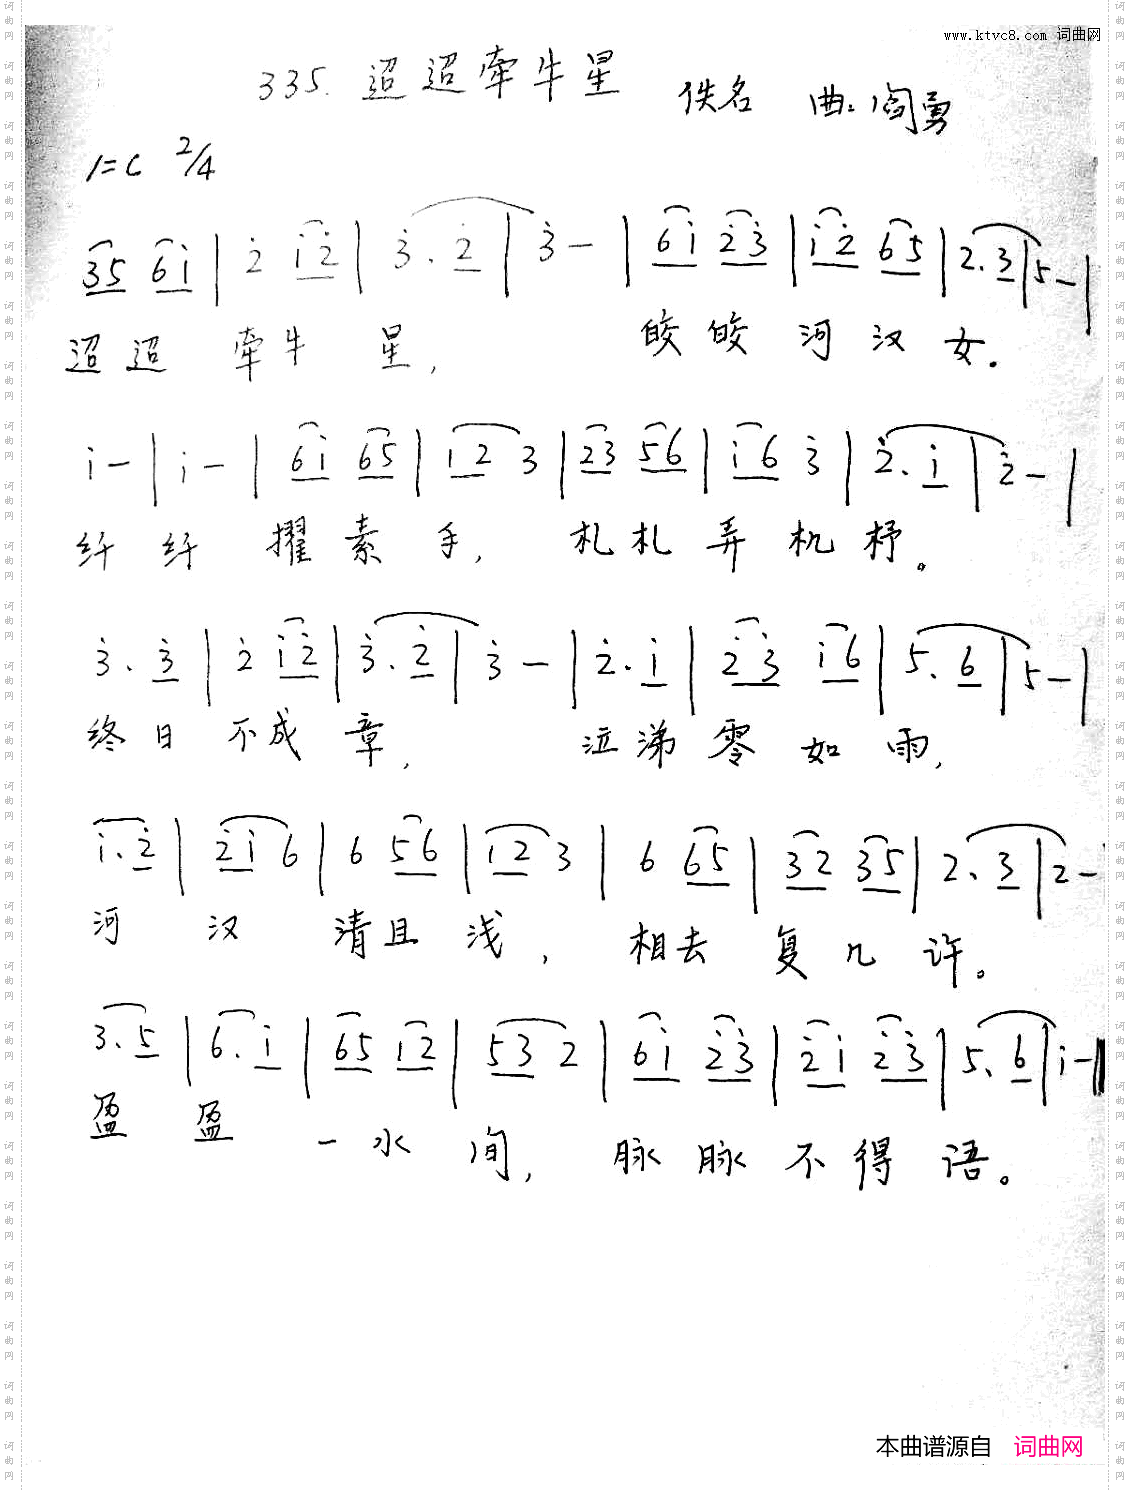 www.ktvc8.com 词曲网
335. 迢迢牵牛星 佚名 曲：阎勇
1=C 2/4
35 6i | 2̇ i2̇ | 3̇. 2̇ | 3̇ - | 6i 2̇3̇ | i2̇ 65 | 2. 3 | 5 - |
迢迢 牵牛 星， 皎皎 河汉女。
i - | i - | 6i 65 | i2 3 | 23 56 | i6 3̇ | 2̇. i | 2̇ - |
纤纤 擢素手， 札札弄机杼。
3̇. 3̇ | 2̇ i2̇ | 3̇. 2̇ | 3̇ - | 2̇. i | 2̇3̇ i6 | 5. 6 | 5 - |
终日 不成章， 泣涕零如雨，
i. 2̇ | 2̇i 6 | 6 56 | i2 3 | 6 65 | 32 35 | 2. 3 | 2 -
河 汉 清且浅， 相去复几许。
3. 5 | 6. i | 65 i2 | 53 2 | 6i 2̇3̇ | 2̇i 2̇3̇ | 5. 6 | i - ||
盈 盈 一水间， 脉脉不得语。
本曲谱源自 词曲网